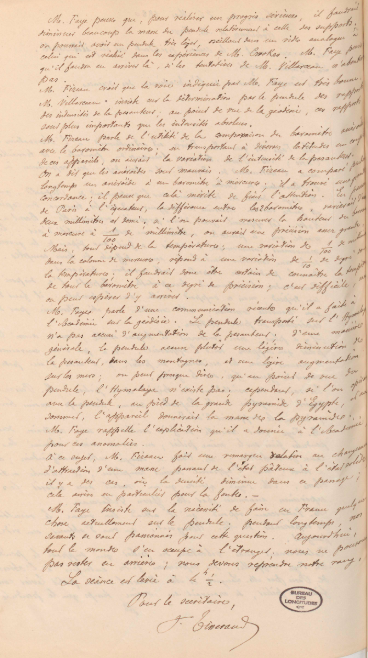 M. Faye pense que, pour réaliser un progrès sérieux, il faudrait
diminuer beaucoup la masse du pendule relativement à celle des supports;
on pourrait avoir un pendule très léger, oscillant dans un vide analogue à
celui qui est réalisé dans les expériences de M. Crookes. M. Faye pense
qu'il faudra en arriver là, si les tentatives de M. Villarceau n'aboutissent
pas.
M. Fizeau croit que la voie indiquée par M. Faye est très bonne.
M. Villarceau insiste sur la détermination par le pendule des rapports
des intensités de la pesanteur, au point de vue de la géodésie, ces rapports
sont plus importants que les intensités absolues.
M. Fizeau parle de l'utilité de la comparaison du baromètre anéroïde
avec le baromètre ordinaire; en transportant à diverses latitudes un
de ces appareils, on aurait la variation de l'intensité de la pesanteur.
On a dit que les anéroïdes sont mauvais. M. Fizeau a comparé pendant
longtemps un anéroïde à un baromètre à mercure; il a trouvé une
concordance; il pense que cela mérite de fixer l'attention.
de Paris à l'équateur, la différence entre les baromètres, serait
deux millimètres et demi; si l'on pouvait mesurer la hauteur du baromètre
à mercure à 1/100 de millimètre, on aurait une précision assez grande.
Mais, tout dépend de la température; une variation de 1/100 de millim.
dans la colonne de mercure, répond à une variation de 1/10 de degré
la température; il faudrait donc être certain de connaître la température
de tout le baromètre, à ce degré de précision; c'est difficile,
on peut espérer d'y arriver.
M. Faye parle d'une communication récente qu'il a faite à
l'Académie sur la géodésie. Le pendule transporté sur l'Hymalaya
n'a pas accusé d'augmentation de la pesanteur. D'une manière
générale, le pendule accuse plutôt une légère diminution de
la pesanteur, dans les montagnes, et une légère augmentation
sur les mers; on peut presque dire qu'au point de vue du
pendule, l'Hymalaya n'existe pas; cependant, si l'on opérait
avec le pendule, au pied de la grande pyramide d'Egypte,
l'appareil donnerait la masse de la Pyramide.
M. Faye rappelle l'explication qu'il a donnée à l'Académie
pour ces anomalies.
A ce sujet, M. Fizeau fait une remarque relative au changement
d'attraction d'une masse passant de l'état pâteux à l'état solide
il y a des cas, où la densité diminue dans ce passage;
cela arrive en particulier pour la fonte.
M. Faye insiste sur la nécessité de faire en France quelque
chose actuellement sur le pendule; pendant longtemps, nos
savants se sont passionnés pour cette question. Aujourd'hui,
tout le monde s'en occupe à l'étranger, nous ne pouvons
pas rester en arrière; nous devons reprendre notre rang.
La séance est levée à 4h 1/2.
Pour le secrétaire,
F. Tisserand
BUREAU
DES
LONGITUDES